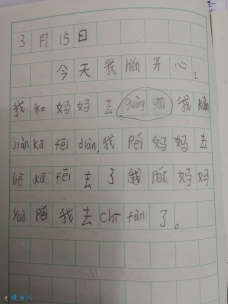 3月15日
今天我hěn开心。
我和妈妈去guàng gāi我kàn
jiàn kā fēi diàn,我péi妈妈去
hē kā fēi去了我péi妈妈
yào péi我去chī fàn了。